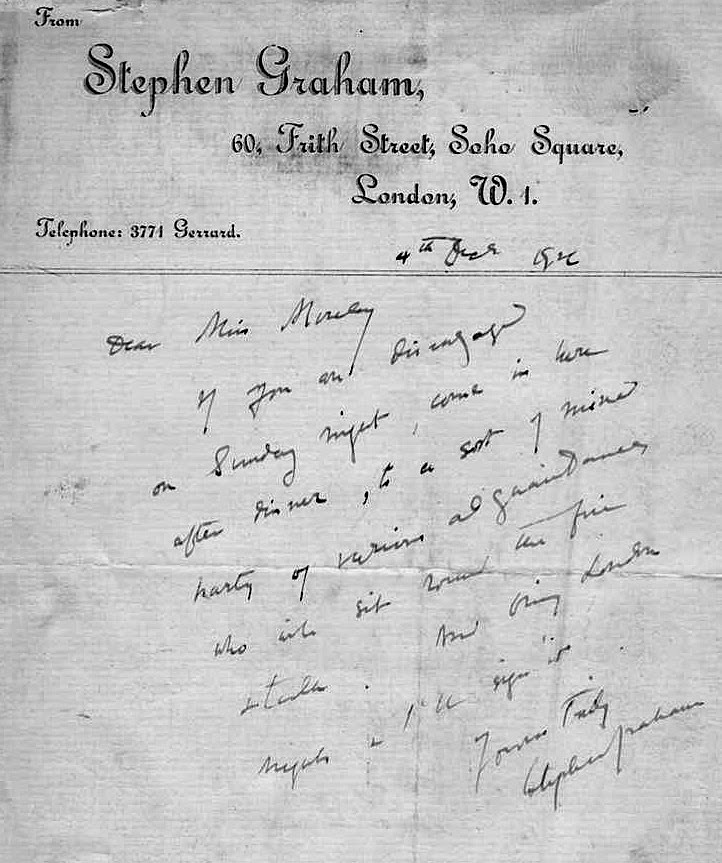 From
Stephen Graham,
60, Frith Street, Soho Square,
London, W. 1.
Telephone: 3771 Gerrard.
4th Decr 1926
Dear Miss
If you are disengaged
on Sunday night, come in here
after dinner, to a sort of mixed
party of various acquaintances
who will sit round the fire
& talk. And bring London
Nights & I'll sign it.
Yours Truly
Stephen Graham